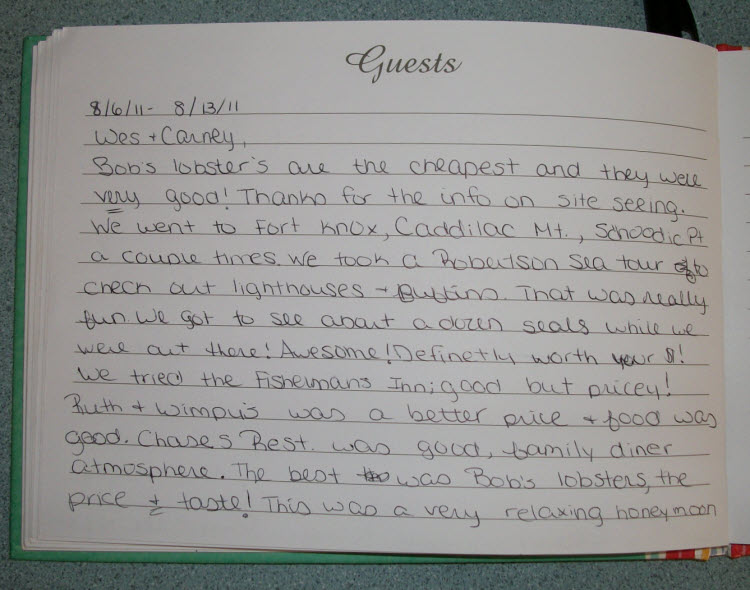 Guests
8/6/11- 8/13/11
Wes + Carney,
Bob's lobster's are the cheapest and they were
very good! Thanks for the info on site seeing.
We went to Fort Knox, Caddilac Mt., Schoodic Pt
a couple times. We took a Robertson Sea tour to
check out lighthouses + Puffins. That was really
fun. We got to see about a dozen seals while we
were out there! Awesome! Definetly worth your $!
We tried the Fisherman's Inn; good but pricey!
Ruth + Wimpy's was a better price + food was
good. Chase's Rest. was good, family diner
atmosphere. The best was Bob's lobsters, the
price + taste! This was a very relaxing honeymoon